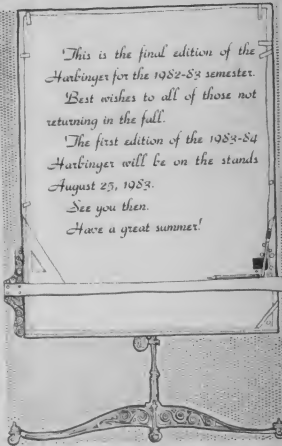 This is the final edition of the
Harbinger for the 1982-83 semester.
Best wishes to all of those not
returning in the fall.
The first edition of the 1983-84
Harbinger will be on the stands
August 25, 1983.
See you then.
Have a great summer!